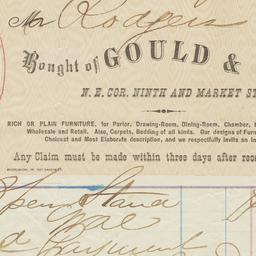 Mr Rodgers
Bought of GOULD &
N. E. COR. NINTH AND MARKET ST
RICH OR PLAIN FURNITURE, for Parlor, Drawing-Room, Dining-Room, Chamber,
Wholesale and Retail. Also, Carpets, Bedding of all kinds. Our designs of Furn
Choicest and Most Elaborate description, and we respectfully invite an in
Any Claim must be made within three days after rece
Stand